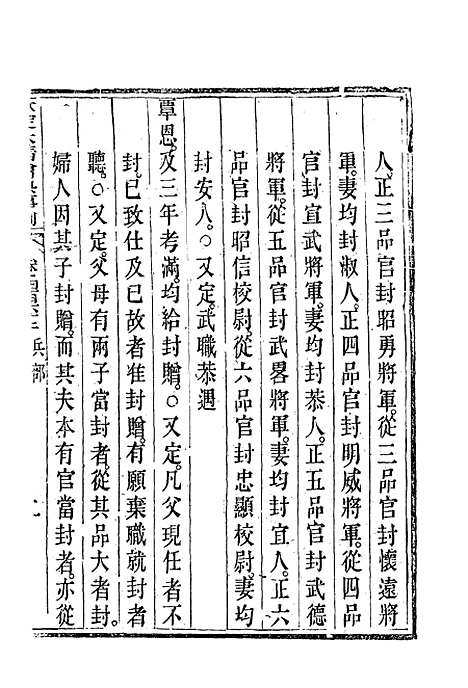 人。正三品官封昭勇將軍。從三品官封懷遠將
軍。妻均封淑人。正四品官封明威將軍。從四品
官封宣武將軍。妻均封恭人。正五品官封武德
將軍。從五品官封武畧將軍。妻均封宜人。正六
品官封昭信校尉。從六品官封忠顯校尉。妻均
封安人。○又定。武職恭遇
覃恩。及三年考滿。均給封贈。○又定。凡父現任者不
封。已致仕及已故者准封贈。有願棄職就封者
聽。○又定。父母有兩子當封者。從其品大者封。
婦人因其子封贈。而其夫本有官當封者。亦從
兵部